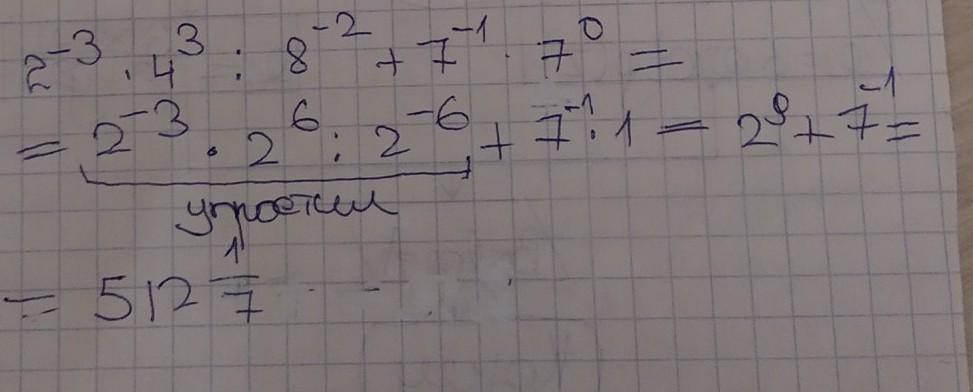 2⁻³ · 4³ : 8⁻² + 7⁻¹ · 7⁰ =
= 2⁻³ · 2⁶ : 2⁻⁶ + 7⁻¹ · 1 = 2⁹ + 7⁻¹ =
упростим
= 512 1/7